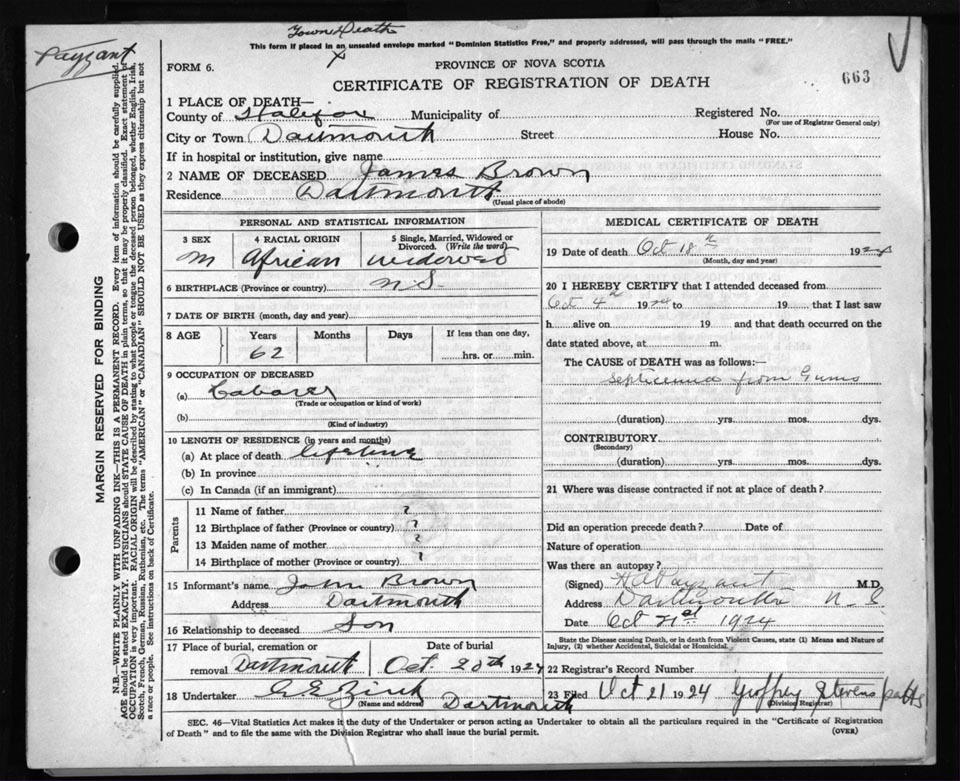 Town Death
This form if placed in an unsealed envelope marked "Dominion Statistics Free," and properly addressed, will pass through the mails "FREE."
X
Payzant
FORM 6.
PROVINCE OF NOVA SCOTIA
CERTIFICATE OF REGISTRATION OF DEATH
663
1 PLACE OF DEATH—
County of Halifax Municipality of Registered No.
(For use of Registrar General only)
City or Town Dartmouth Street House No.
If in hospital or institution, give name
2 NAME OF DECEASED James Brown
Residence Dartmouth
(Usual place of abode)
PERSONAL AND STATISTICAL INFORMATION
3 SEX 4 RACIAL ORIGIN 5 Single, Married, Widowed or Divorced. (Write the word)
M African widowed
6 BIRTHPLACE (Province or country) N S.
7 DATE OF BIRTH (month, day and year)
8 AGE Years Months Days If less than one day,
62 hrs. or min.
9 OCCUPATION OF DECEASED
(a) Labarer
(Trade or occupation or kind of work)
(b)
(Kind of industry)
10 LENGTH OF RESIDENCE (in years and months)
(a) At place of death lifetime
(b) In province
(c) In Canada (if an immigrant)
Parents
11 Name of father ?
12 Birthplace of father (Province or country) ?
13 Maiden name of mother ?
14 Birthplace of mother (Province or country) ?
15 Informant's name John Brown
Address Dartmouth
16 Relationship to deceased Son
17 Place of burial, cremation or
removal Dartmouth Oct. 20th 1924
18 Undertaker
(Name and address) Dartmouth
MEDICAL CERTIFICATE OF DEATH
19 Date of death Oct 18th 1924
(Month, day and year)
20 I HEREBY CERTIFY that I attended deceased from
Oct 4th 1924 to 19 that I last saw
h alive on 19 and that death occurred on the
date stated above, at m.
The CAUSE of DEATH was as follows:—
Septicemia from Gums
(duration) yrs. mos. dys.
CONTRIBUTORY
(Secondary)
(duration) yrs. mos. dys.
21 Where was disease contracted if not at place of death?
Did an operation precede death? Date of
Nature of operation
Was there an autopsy?
(Signed) H A Payzant M.D.
Address Dartmouth N. S.
Date Oct 21st 1924
State the Disease causing Death, or in death from Violent Causes, state (1) Means and Nature of
Injury, (2) whether Accidental, Suicidal or Homicidal.
22 Registrar's Record Number
23 Filed Oct 21 1924 Geoffrey Stevens
(Division Registrar)
SEC. 46—Vital Statistics Act makes it the duty of the Undertaker or person acting as Undertaker to obtain all the particulars required in the "Certificate of Registration
of Death" and to file the same with the Division Registrar who shall issue the burial permit.
(OVER)
MARGIN RESERVED FOR BINDING
N.B.—WRITE PLAINLY WITH UNFADING INK—THIS IS A PERMANENT RECORD. Every item of information should be carefully supplied.
AGE should be stated EXACTLY. PHYSICIANS should STATE CAUSE OF DEATH in plain terms, so that it may be properly classified. Exact statement of
OCCUPATION is very important. RACIAL ORIGIN will be described by stating to what people or tongue the deceased person belonged, whether English, Irish,
Scotch, French, German, Russian, Ruthenian, etc. The terms "AMERICAN" or "CANADIAN" SHOULD NOT BE USED as they express citizenship but not
a race or people. See instructions on back of Certificate.